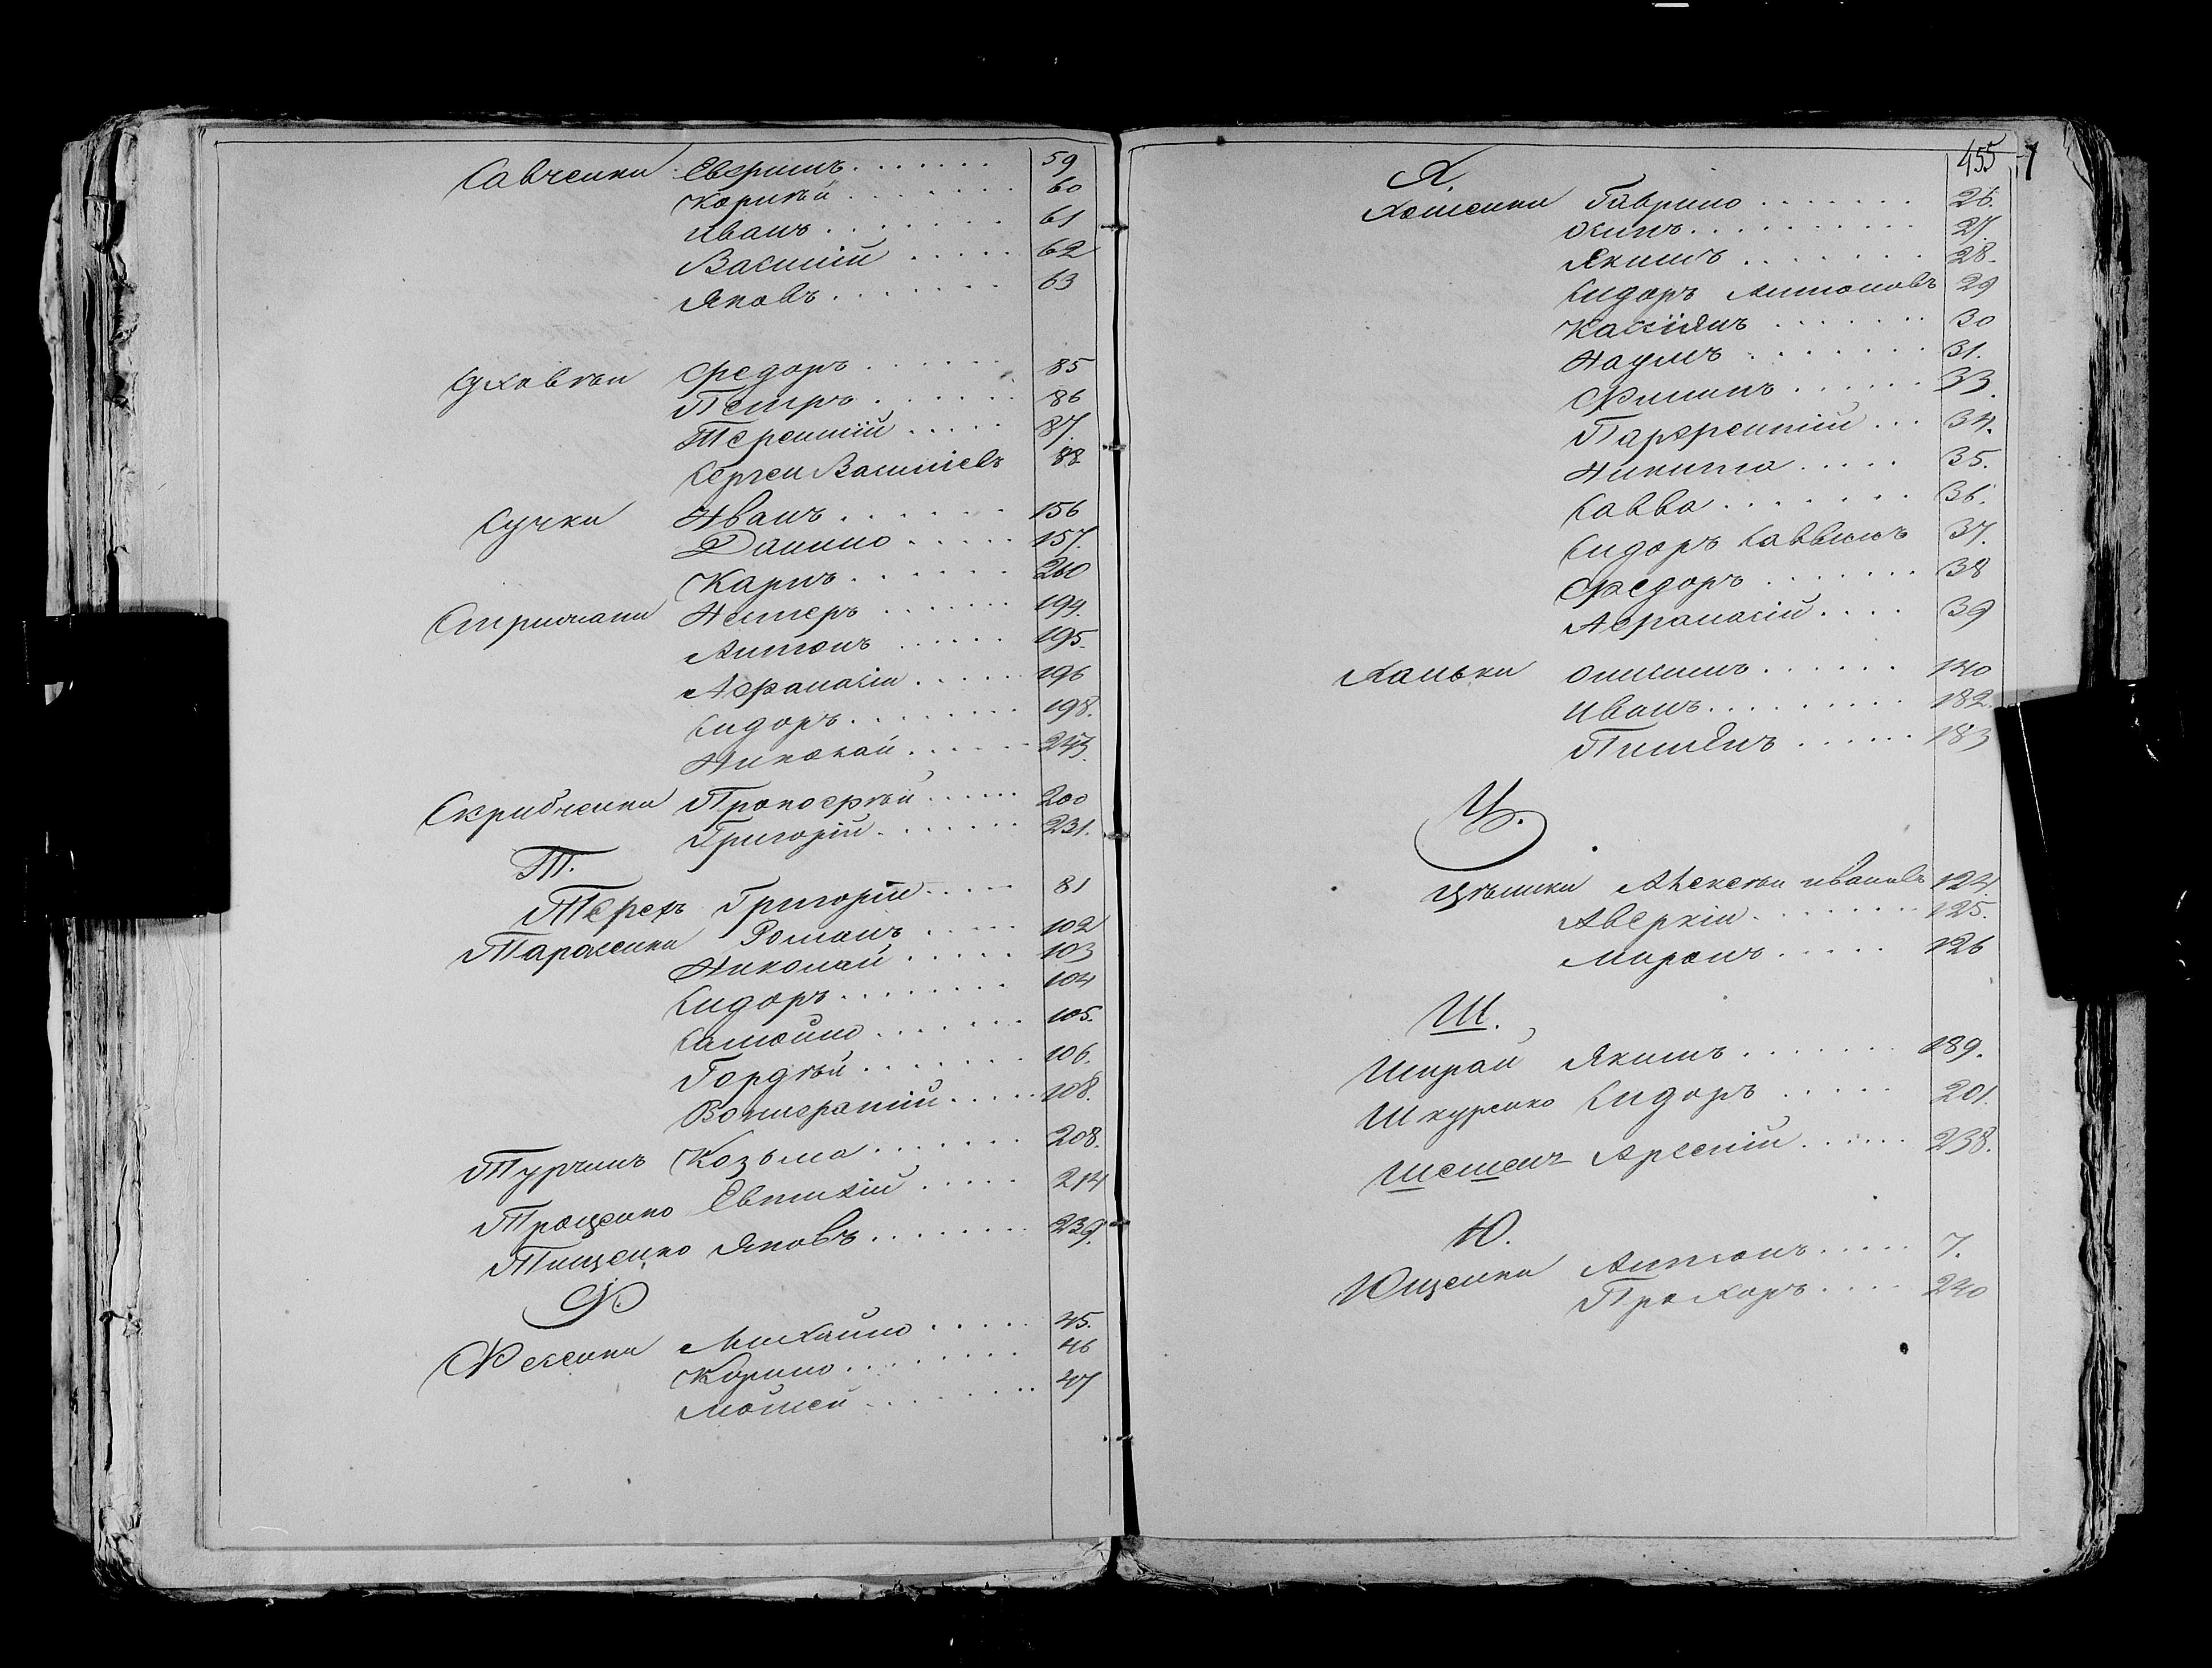 Савченки Северинъ 59
Корнѣй 60
Иванъ 61
Василій 62
Яковъ 63
Федоръ 85
Петръ 86
Терентій 87.
Сергеи Василіевъ 88
Сучки Иванъ 156
Данило 157.
Карпъ 260
Нестеръ 194.
Антонъ 195.
Афанасіи 196
Сидоръ 198.
Николай 243.
Скрибченки Прокофѣй 200
Григорій 231.
Т.
Терехъ Григоріи 81
Тарасенки Романъ 102
Николай 103
Сидоръ 104
Самойло 105.
Гордѣй 106.
Вонифатій 108.
Турчинъ Козьма 208.
Троценко Евтихій 214
Тищенко Яковъ 239.
Ф.
Фесенки Михайло 45.
Кирило 46
Мойсей 47
455
Х.
Хоменки Гаврило 26.
Осипъ 27.
Якимъ 28.
Сидоръ Антоновъ 29
Касіянъ 30
Наумъ 31.
Филипъ 33.
Парфентій 34.
Никита 35.
Савва 36.
Сидоръ Саввинъ 37.
Федоръ 38
Афанасій 39
Ханьки Онисимъ 140
Иванъ 182.
Пименъ 183
Ц.
Алексѣи Ивановъ 124.
Аверкіи 125.
Миронъ 126
Ш.
Ширай Якимъ 189.
Шкуренко Сидоръ 201.
Арсеніи 238.
Ю.
Ющенки Антонъ 7.
Прохоръ 240